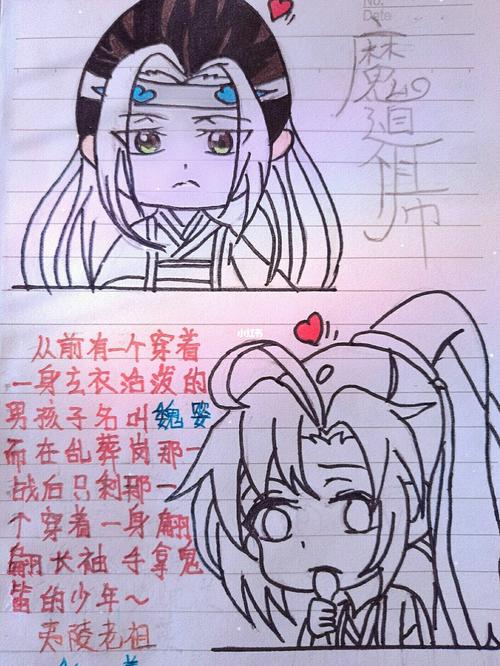 No.
Date
魔道祖师
小红书
从前有一个穿着
一身玄衣洛泼的
男孩子名叫魏婴
而在乱葬岗那一
战后只剩那一
个穿着一身翩
翩长袖手拿鬼
笛的少年～
夷陵老祖